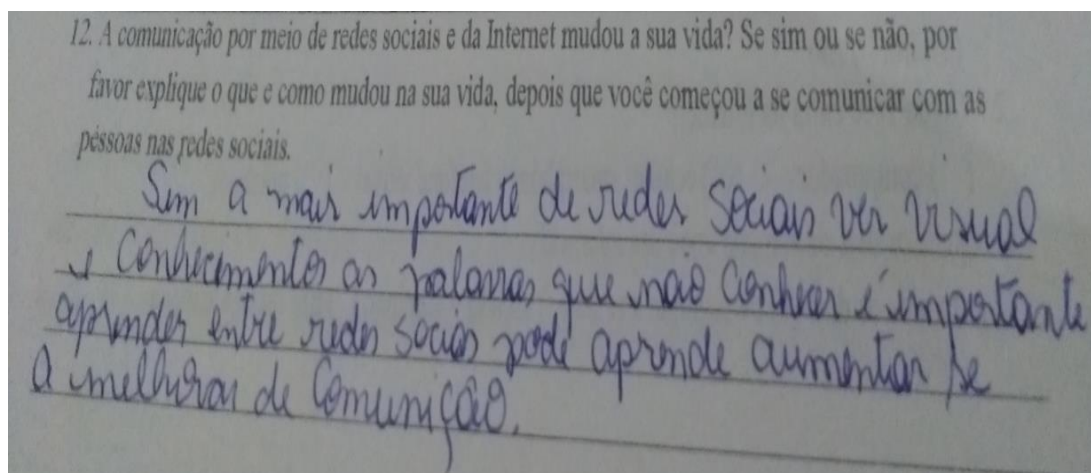 12. A comunicação por meio de redes sociais e da Internet mudou a sua vida? Se sim ou se não, por
favor explique o que e como mudou na sua vida, depois que você começou a se comunicar com as
pessoas nas redes sociais.
Sim a mais importante de redes sociais ver visual
e conhecimentos as palavras que não conhecer é importante
aprender entre redes sociais pode aprende aumentar se
a melhorar de Comunição.